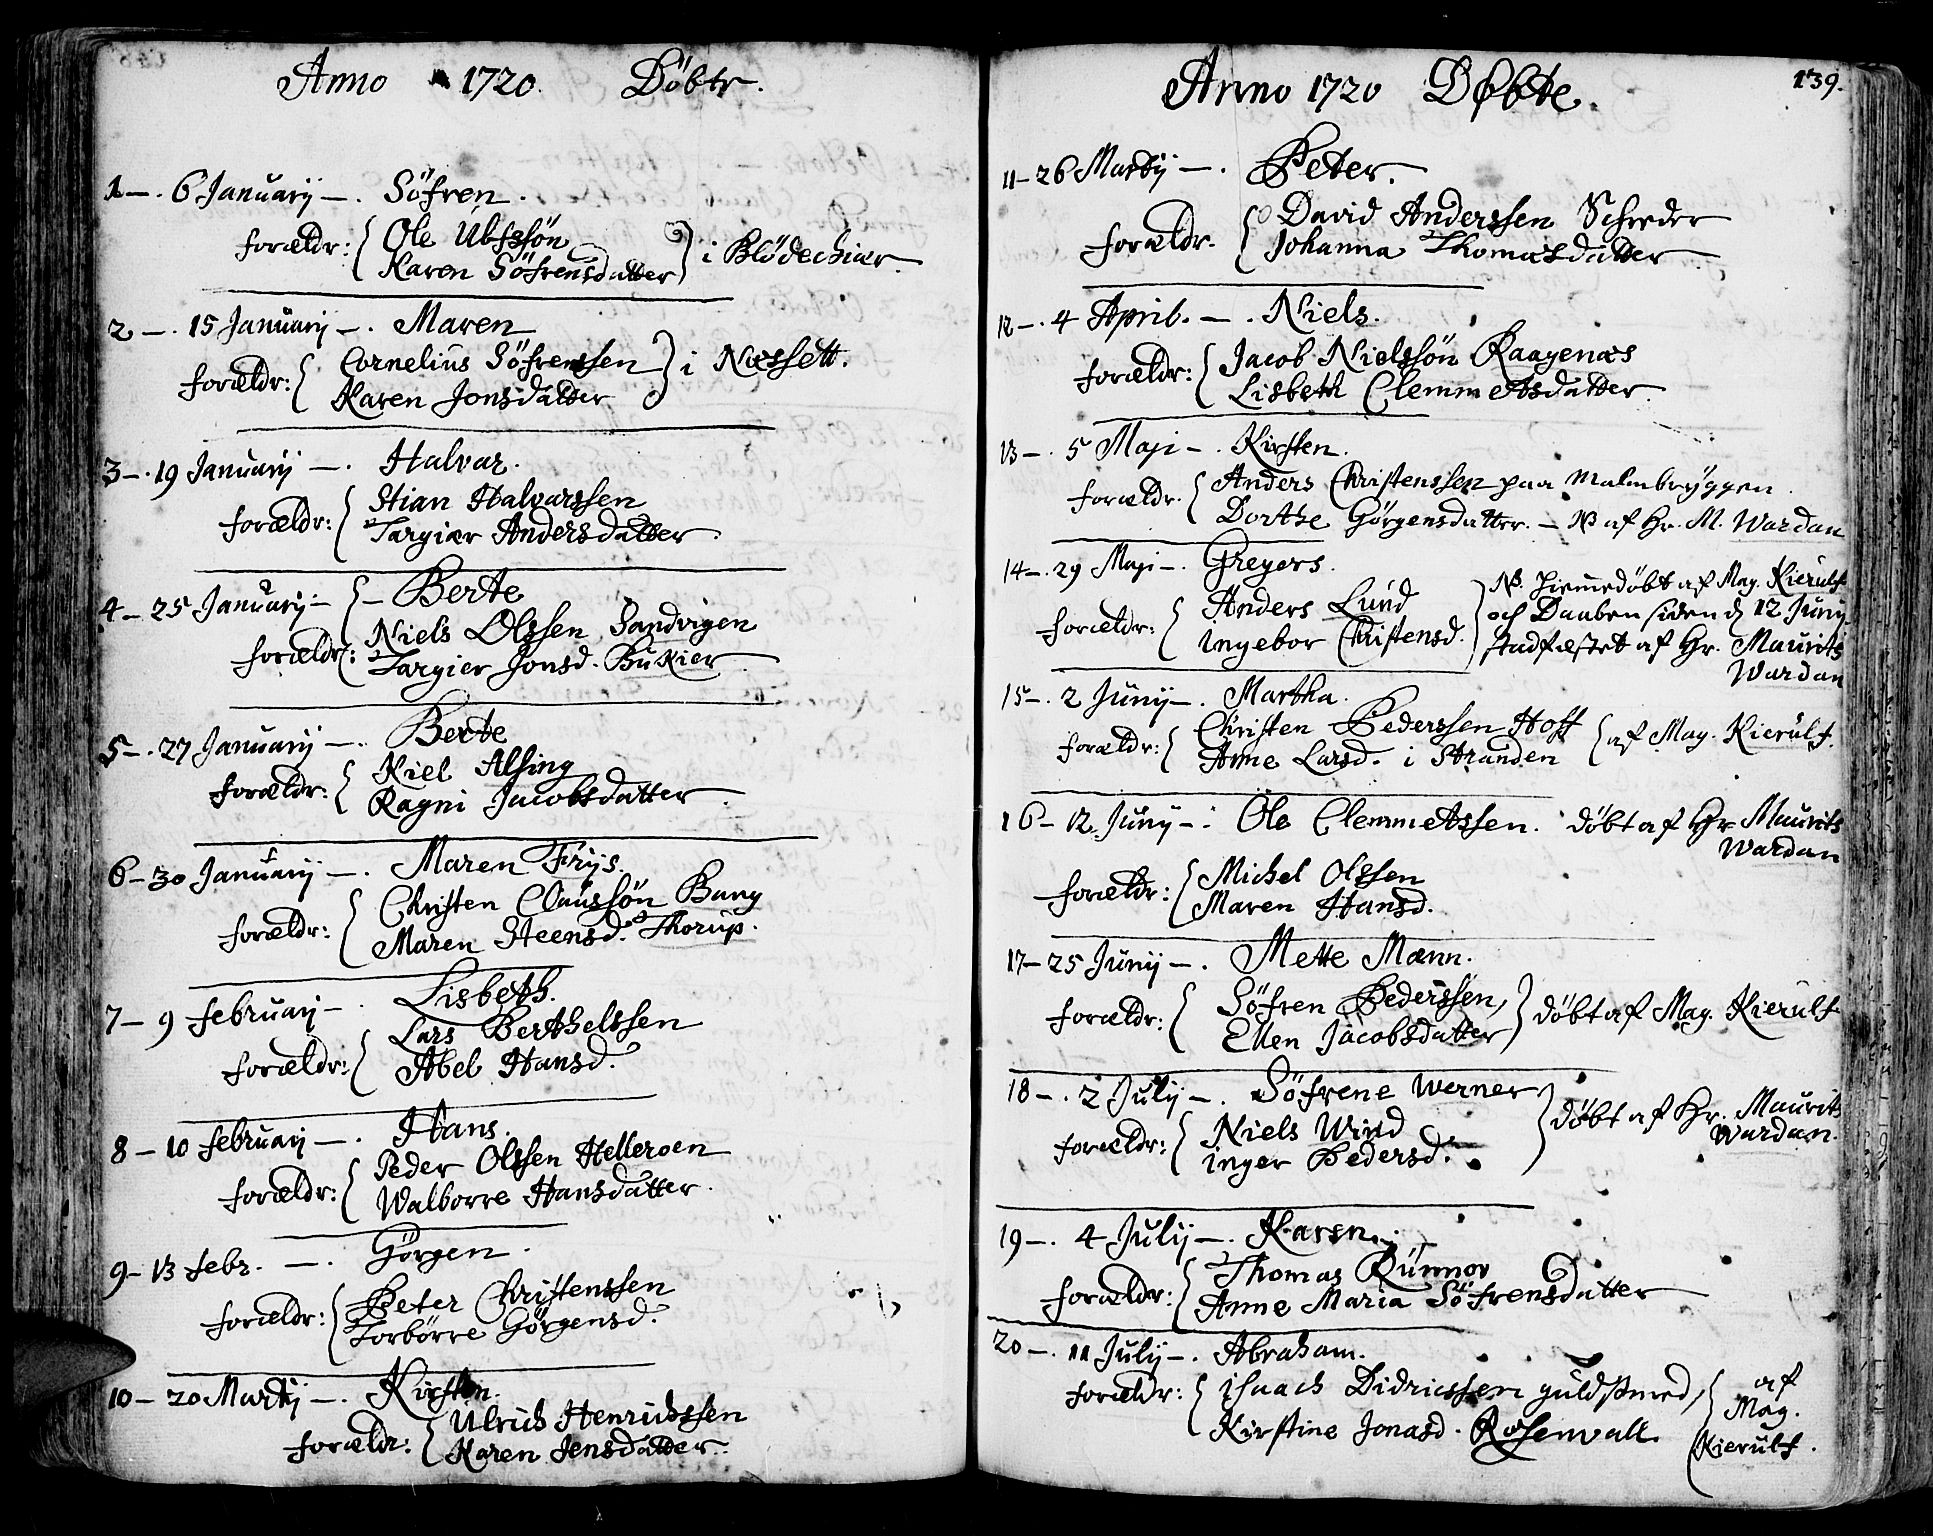 Anno 1720. Döbte.
1 —. 6 Januarij —. Söfren.
forældr: { Ole Ulfssön
Karen Söfrensdatter } i Blödechiær.
2 —. 15 Januarij —. Maren
forældr: { Cornelius Söfrenssen } i Næssett.
Karen Jonsdatter
3 —. 19 Januarij —. Halvar.
forældr: { Stian Halvarssen
Targier Andersdatter.
4 — 25 Januarij — { — Berte
forældr: Niels Olssen Sandvigen
Targier Jonsd. Bukier
5 —. 27 Januarij —. Berte
forældr: { Kiel Alsing
Ragni Jacobsdatter.
6 — 30 Januarij —. Maren Friis.
forældr: { Christen Claussön Bang
Maren Steensd. Thorup.
7 — 9 februarij —. Lisbeth.
forældr: { Lars Berthelssen
Abel Hansd.
8 — 10 februarij —. Hans.
forældr: { Peder Olssen Helleroen
Walborre Hansdatter.
9 — 13 febr. —. Görgen.
forældr: { Peter Christenssen
Torbörre Görgensd.
10 — 20 Martij —. Kirsten.
forældr: { Ulrich Henrichssen
Karen Jensdatter.
Anno 1720 Døbte. 139.
11 — 26 Martij —. Peter.
forældr. { David Anderssen Schreder
Johanna Thomasdatter
12 —. 4 April. —. Niels.
forældr: { Jacob Nielssön Raagenæs
Lisbeth Clemmetsdatter.
13 —. 5 Maji —. Kirsten.
forældr. { Anders Christenssen paa Malmbryggen.
Dorthe Görgensdatter. — NB af Hr. M. Wardan
14 —. 29 Maji —. Gregers.
forældr: { Anders Lund
Ingebor Christensd. } NB. Hiemmedöbt af Mag. Kierulf
och Daaben siden d 12 Junij
stadfæstet af Hr. Maurits
Wardan
15 —. 2 Junij —. Martha.
forældr: { Christen Pederssen Hoff { af Mag. Kierulf.
Anne Larsd. i Stranden
16 — 12 Junij —. Ole Clemmetssen. döbt af Hr Maurits
Wardan
forældr: { Michel Olssen
Maren Hansd.
17 — 25 Junij —. Mette Mænn.
forældr: { Söfren Pederssen,
Ellen Jacobsdatter } döbt af Mag. Kierulf
18 —. 2 Julij —. Söfrene Werner
forældr: { Niels Wind
Inger Pedersd. } döbt af Hr. Maurits
Wardan.
19 —. 4 Julij —. Karen.
forældr: { Thomas Rünnov
Anne Maria Söfrensdatter
20 —. 11 Julij —. Abraham.
forældr: { Isaach Didricssen guldsmed,
Kirstine Jonasd. Rosenvall. { af
Mag.
Kierulf.